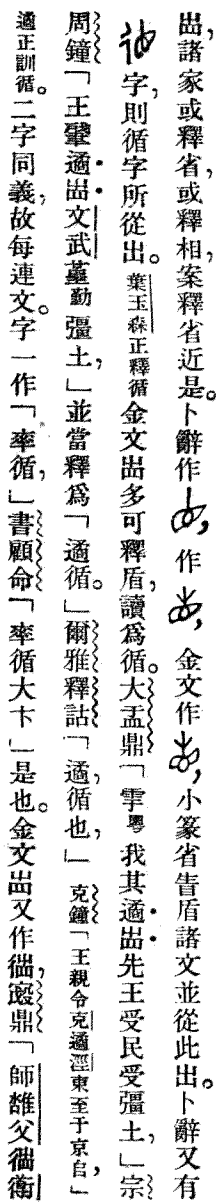 㞷，諸家或釋省，或釋相，案釋省近是。卜辭作，作，金文作，小篆省眚盾諸文並從此出。卜辭又有
字，則循字所從出。葉玉森正釋循金文㞷多可釋盾，讀爲循。大盂鼎「雩粵我其遹㞷先王受民受疆土，」宗
周鐘「王肇遹㞷文武堇勤彊土，」並當釋爲「遹循。」爾雅釋詁「遹，循也，」克鐘「王親令克遹涇東至于京𠂤，」
遹正訓循。二字同義，故每連文。字一作「率循，」書顧命「率循大卞」是也。金文㞷又作徣，㝨鼎「師雝父徣衜